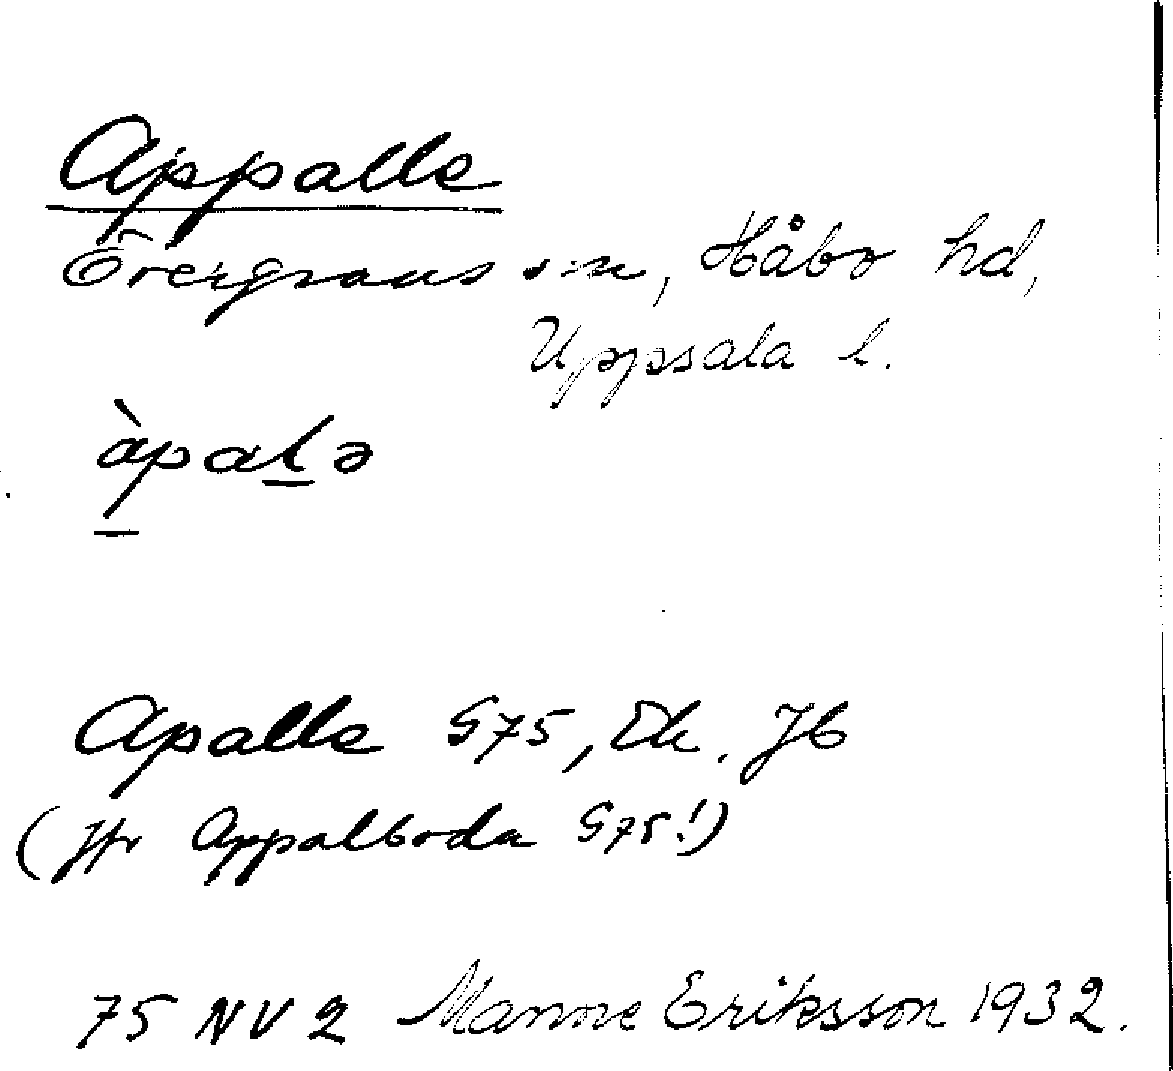 Appalle
Övergrans sn, Håbo hd,
Uppsala l.
àpaḻə
Apalle G75, Ek. Jb
(Jfr Appalboda G75!)
75 NV 2 Manne Eriksson 1932.